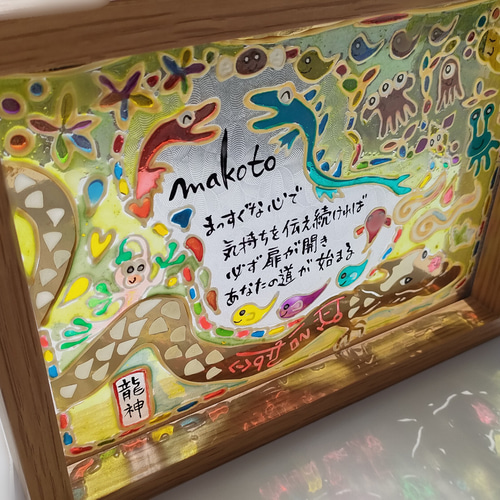 makoto
まっすぐな心で
気持ちを伝え続ければ
必ず扉が開き
あなたの道が始まる
龍神